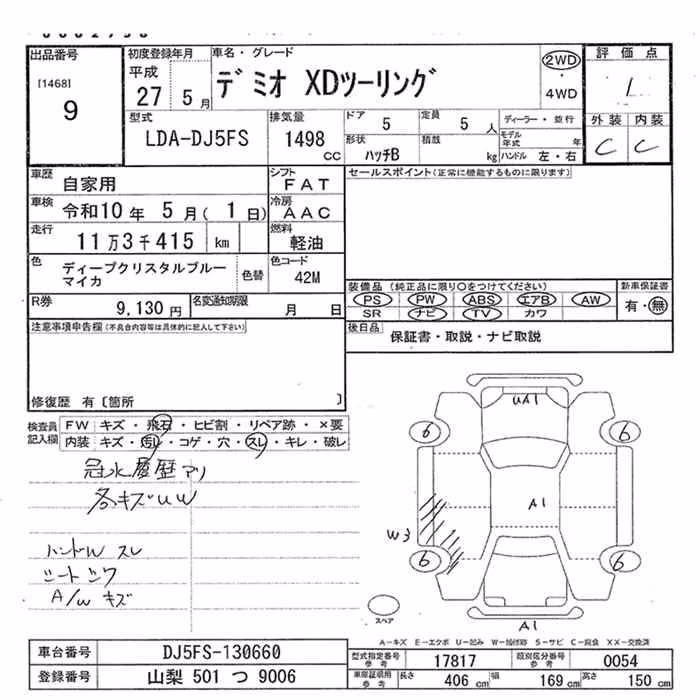 出品番号
[1468]
9
初度登録年月
平成
27 5月
車名・グレード
デミオ XDツーリング
2WD
・
4WD
評価点
1
外装 内装
C C
型式
LDA-DJ5FS
排気量
1498
CC
ドア
5
定員
5人
形状
ハッチB
積載
kg
ディーラー・並行
モデル年式 年
ハンドル 左・右
車歴
自家用
シフト
FAT
車検
令和10年 5月( 1日)
冷房
AAC
走行
11万3千415 km
燃料
軽油
色
ディープクリスタルブルー
マイカ
色替
色コード
42M
R券
9,130円
名変通知期限
月 日
セールスポイント(正常に機能するものに限ります)
装備品 (純正品に限り○をつけてください)
PS PW ABS エアB AW
SR ナビ TV カワ
新車保証書
有・無
後日品
保証書・取説・ナビ取説
注意事項申告欄(不具合内容等は具体的に記入して下さい)
修復歴 有〔箇所 〕
検査員
記入欄
FW キズ・飛石・ヒビ割・リペア跡・×要
内装 キズ・汚レ・コゲ・穴・スレ・キレ・破レ
冠水履歴アリ
各キズUW
ハンドル スレ
シート シワ
A/W キズ
UA1
6 6
A1
W3
6 6
A1
スペア
A―キズ E―エクボ U―凹み W―補修跡 S―サビ C―腐食 XX―交換済
車台番号
DJ5FS-130660
登録番号
山梨 501 つ 9006
型式指定番号
参考
17817
類別区分番号
参考
0054
車庫証明用
参考
長さ
406 cm
幅
169 cm
高さ
150 cm